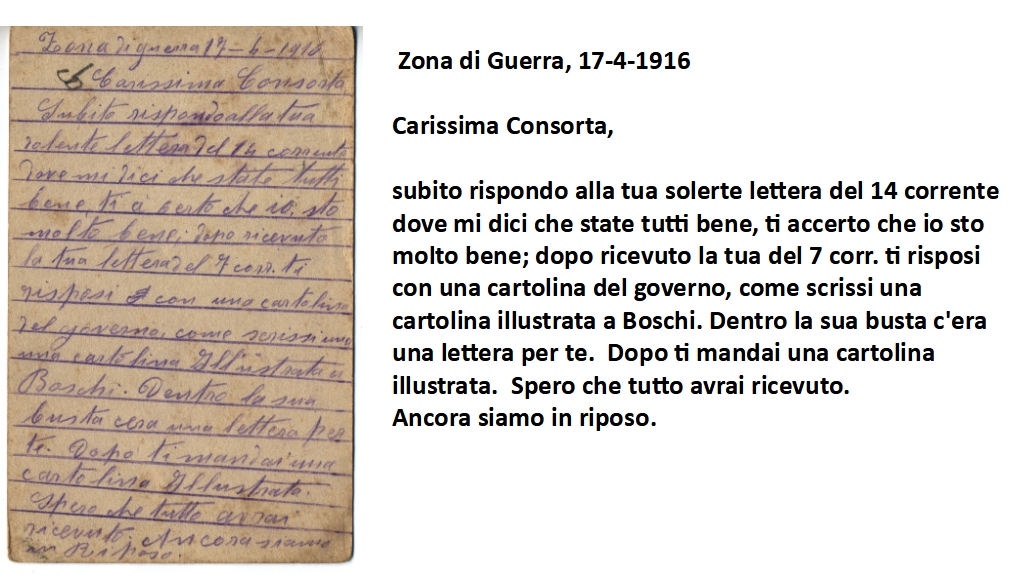 Zona di guerra 17-4-1916
Carissima Consorta
Subito rispondo alla tua
solerte lettera del 14 corrente
dove mi dici che state tutti
bene, ti a certo che io, sto
molto bene; dopo ricevuto
la tua lettera del 7 corr. ti
risposi con una cartolina
del governo, come scrissi una
una cartolina Illustrata a
Boschi. Dentro la sua
busta cera una lettera per
te. Dopo ti mandai una
cartolina Illustrata.
Spero che tutto avrai
ricevuto. Ancora siamo
in Riposo.
Zona di Guerra, 17-4-1916
Carissima Consorta,
subito rispondo alla tua solerte lettera del 14 corrente
dove mi dici che state tutti bene, ti accerto che io sto
molto bene; dopo ricevuto la tua del 7 corr. ti risposi
con una cartolina del governo, come scrissi una
cartolina illustrata a Boschi. Dentro la sua busta c'era
una lettera per te.  Dopo ti mandai una cartolina
illustrata.  Spero che tutto avrai ricevuto.
Ancora siamo in riposo.